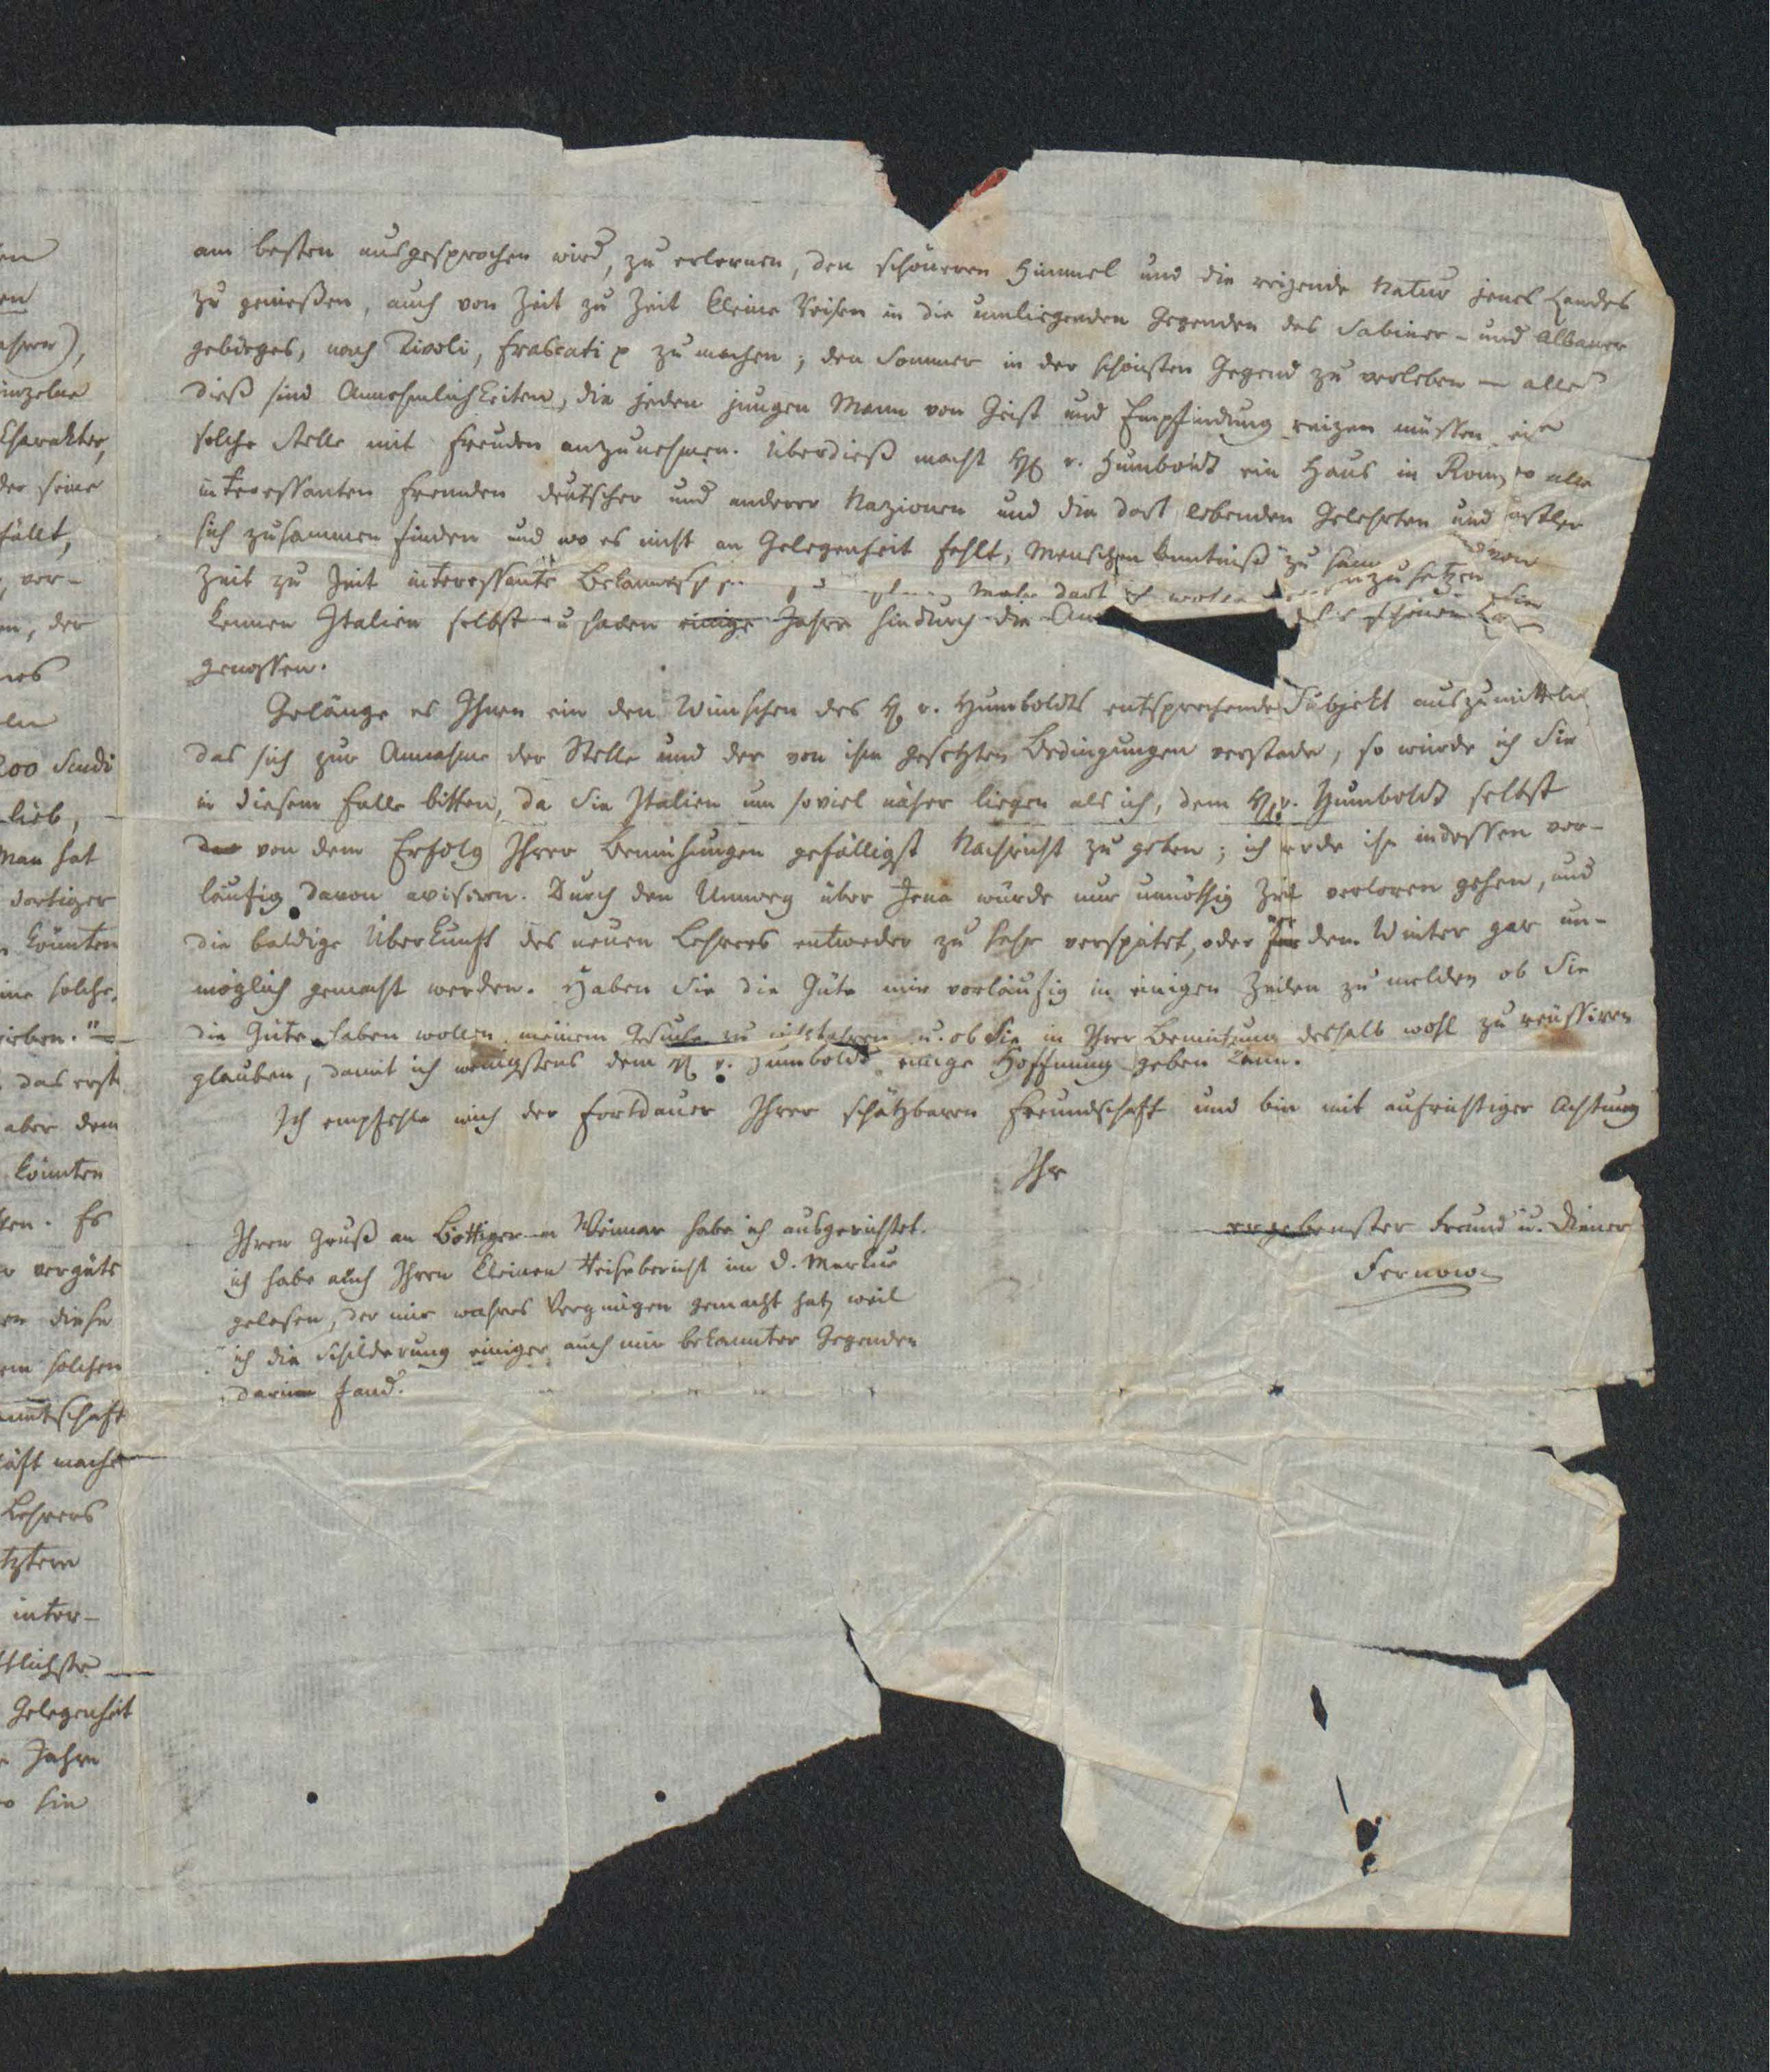 am besten ausgesprochen wird, zu erlernen, den schöneren Himmel und die reizende Natur jenes Landes
zu genießen, auch von Zeit zu Zeit kleine Reisen in die umliegenden Gegenden des Sabiner- und Albaner
gebirges, nach Tivoli, Frascati zu machen; den Sommer in der schönsten Gegend zu verleben — alles
dieß sind Annehmlichkeiten, die jeden jungen Mann von Geist und Empfindung reizen müssen eine
solche Stelle mit Freuden anzunehmen. Überdieß macht H v. Humboldt ein Haus in Rom, wo alle
interessanten Fremden deutscher und anderer Nazionen und die dort lebenden Gelehrten und
sich zusammen finden und wo es nicht an Gelegenheit fehlt, Menschenkenntniß zu und von
Zeit zu Zeit interessante dort zusetzen Sie
kennen Italien selbst u haben einige Jahre hindurch die schönen
genossen.
Gelänge es Ihnen ein den Wünschen des H v. Humboldts entsprechendes Subjekt auszumitteln
das sich zur Annahme der Stelle und der von ihm gesetzten Bedingungen verstände, so würde ich Sie
in diesem Falle bitten, da Sie Italien um soviel näher liegen als ich, dem H v. Humboldt selbst
von dem Erfolg Ihrer Bemühungen gefälligst Nachricht zu geben; ich werde ihn indessen vor-
läufig davon avisiren. Durch den Umweg über Jena würde nur unnöthig Zeit verloren gehen, und
die baldige Überkunft des neuen Lehrers entweder zu sehr verspätet, oder vor dem Winter gar un-
möglich gemacht werden. Haben Sie die Güte mir vorläufig in einigen Zeilen zu melden ob Sie
die Güte haben wollen meinem Gesuche zu u. ob Sie in Ihrer Bemühung deshalb wohl zu reüssiren
glauben, damit ich wenigstens dem H v. Humboldt einige Hoffnung geben kann.
Ich empfehle mich der Fortdauer Ihrer schätzbaren Freundschaft und bin mit aufrichtiger Achtung
Ihr
ergebenster Freund u. Diener
Fernow
Ihren Gruß an Böttiger in Weimar habe ich ausgerichtet.
ich habe auch Ihren kleinen Reisebericht im d. Merkur
gelesen, der mir wahres Vergnügen gemacht hat, weil
ich die Schilderung einiger auch mir bekannter Gegenden
darinn fand.
en
en
inzelne
Charakter,
der seine
fällt,
, ver-
en, der
200 Scudi
lieb,
Man hat
dortiger
könnten
ine solche
das erste
aber dem
könnten
Es
vergüte
diese
em solchen
nntschaft
macht
Lehrers
tztern
inter-
Gelegenheit
Jahre
sie